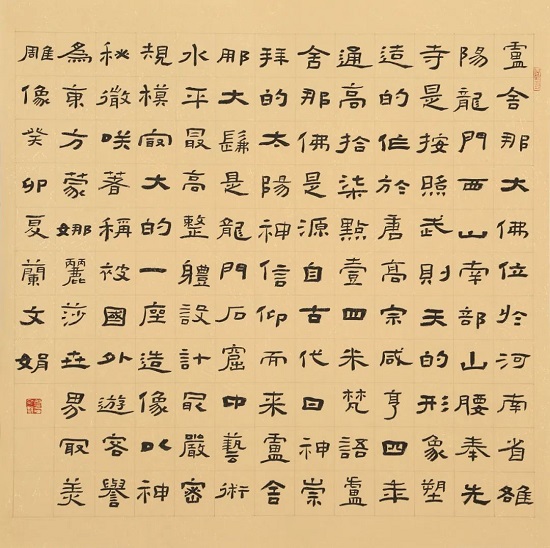 盧舍那大佛位於河南省雒
陽龍門西山南部山腰奉先
寺是按照武則天的形象塑
造的作於唐高宗咸亨四年
通高拾柒點壹四米梵語盧
舍那佛是源自古代日神崇
拜的太陽神信仰而來盧舍
那大髴是龍門石窟中藝術
水平最高整體設計冣嚴密
規模冣大的一座造像以神
秘微咲著稱被國外遊客譽
為東方蒙娜麗莎世界冣美
雕像癸卯夏蘭文娟